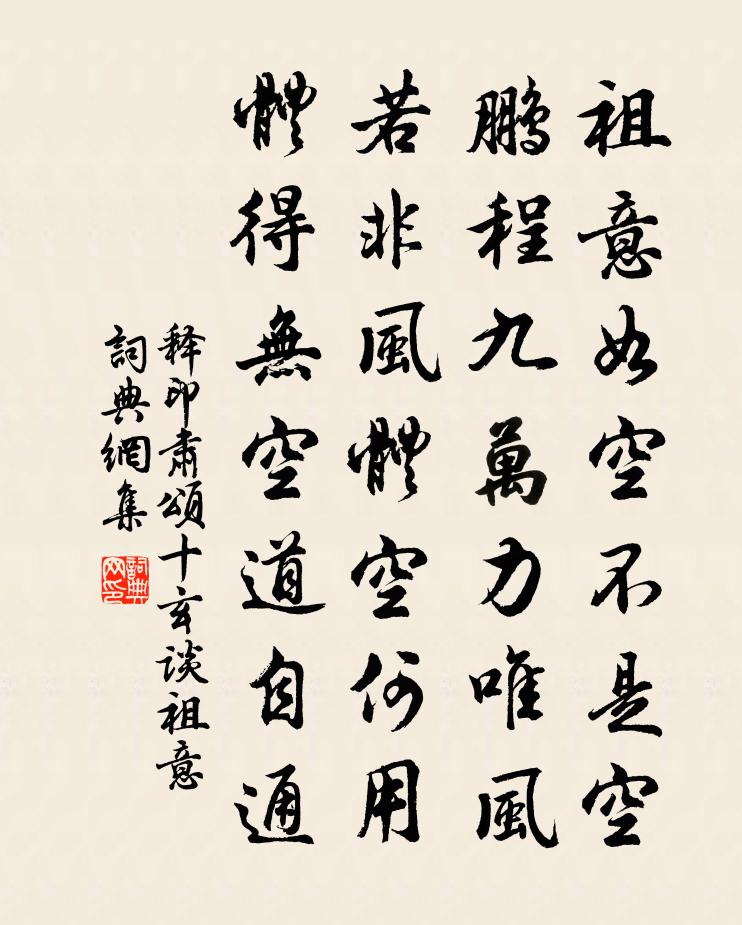 祖意如空不是空
鹏程九萬力唯風
若非風體空何用
體得無空道自通
释印肃頌十玄谈祖意
詞典網集
詞典网印